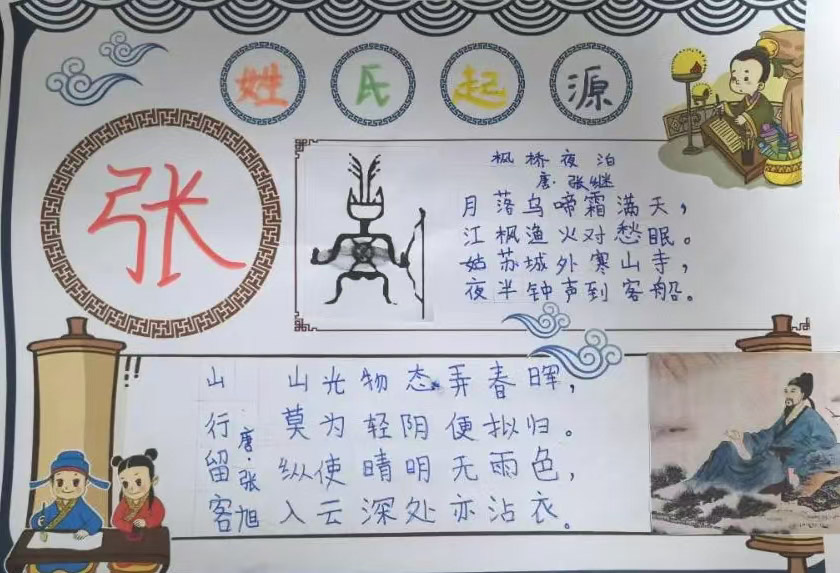 姓氏起源
张
枫桥夜泊
唐·张继
月落乌啼霜满天，
江枫渔火对愁眠。
姑苏城外寒山寺，
夜半钟声到客船。
山行留客
唐·张旭
山光物态弄春晖，
莫为轻阴便拟归。
纵使晴明无雨色，
入云深处亦沾衣。